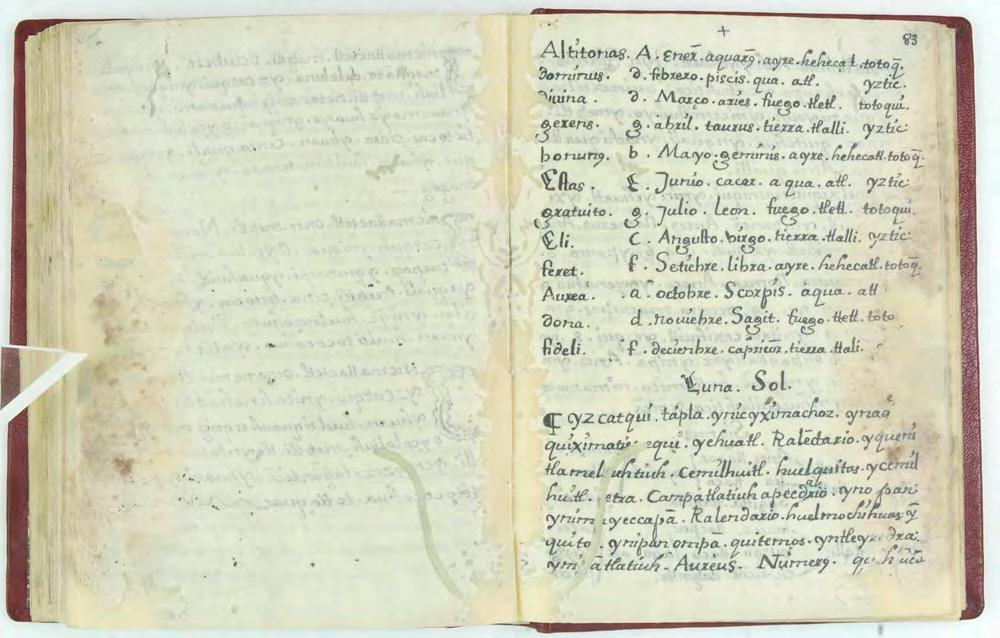 +
83
Altitonas. A. enēr. aquar9. ayre. hehecatl. totoq̄.
dominus. d. febrero. piscis. qua. atl. yztic.
diuina. d. Março. aries. fuego. tletl. totoqui.
gerens. g. abril. taurus. tierra. tlalli. yztic
bonum9. b. Mayo. geminis. ayre. hehecatl. totoq̄.
Estas. E. Junio. cacer. aqua. atl. yztic
gratuito. g. Julio. Leon. fuego. tletl. totoqui.
Eli. C. Angusto. birgo. tierra. tlalli. yztic
feret. f. Setiēbre. libra. ayre. hehecatl. totoq̄.
Aurea. a. octobre. Scorpis. aqua. atl
dona. d. nouiebre. Sagit. fuego. tletl. toto
fideli. f. deciembre. capricor. tierra. tlali.
Luna. Sol.
¶ yz catqui. tapla. ynic yximachoz. ynaq
quiximati yehuatl. Kalēdario. yqueni
tlamel uhtiuh. Cemilhuitl. huel quitas. ycemil
huitl. etra. Campa tlatiuh yno pan
yeccapā. Kalendario. huel mochihuas ȳ
quito. ynipan ompa. quitemos. dra.
ātlatiuh. Aureus. Numer9.